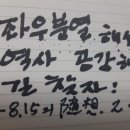 좌우분열 해소
역사 공감하
길 찾자!
-8.15의 隨想. 2.